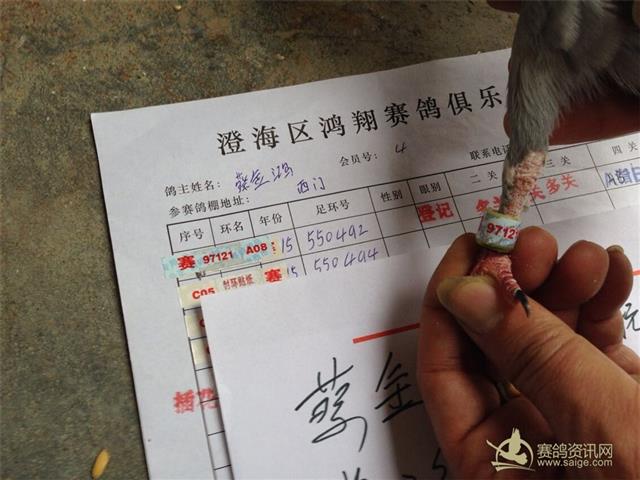 澄海区鸿翔赛鸽俱乐
鸽主姓名：蔡金鸿 会员号：4 联系电话
参赛鸽棚地址：西门
序号 环名 年份 足环号 性别 眼别 二关 三关 四关
赛 97121 A08 15 550492 登记 多关
C05 封环贴纸 15 550494
插花
9712
蔡金
赛鸽资讯网
www.saige.com